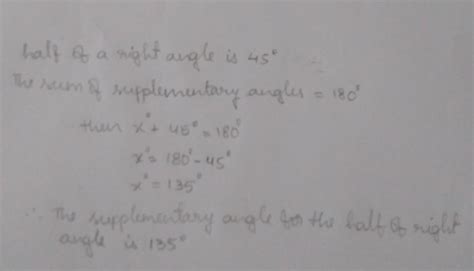 half of a right angle is 45°
The sum of supplementary angles = 180°
then x° + 45° = 180°
x° = 180° - 45°
x° = 135°
∴ The supplementary angle for the half of right
angle is 135°